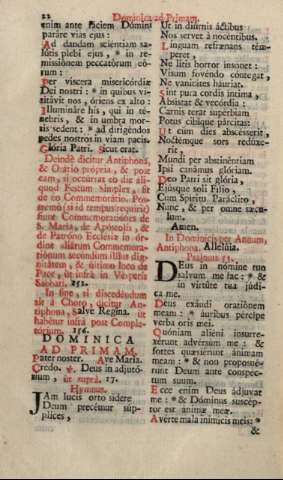 22 Dominica ad Primam.
enim ante faciem Domini
paráre vias ejus :
Ad dandam scientiam sa-
lútis plebi ejus , * in re-
missiónem peccatórum eó-
rum :
Per víscera misericórdiæ
Dei nostri : * in quibus vi-
sitávit nos , óriens ex alto :
Illumináre his , qui in té-
nebris , & in umbra mor-
tis sedent : * ad dirigéndos
pedes nostros in viam pacis.
Glória Patri. Sicut erat.
Deinde dicitur Antiphona,
& Oratio propria, & post
eam , si occurrat eo die ali-
quod Festum Simplex, fit
de eo Commemoratio. Post-
remò (si id tempus requirit)
fiunt Commemorationes de
S. Maria, de Apostolis, &
de Patrono Ecclesiæ in or-
dine aliarum Commemora-
tionum secundum illius dig-
nitatem , & ultimo loco de
Pace, ut infra in Vesperis
Sabbati. 252.
In fine, si discedendum
sit à Choro, dicitur An-
tiphona, Salve Regina. ut
habetur infra post Comple-
torium. 156.
DOMINICA
AD PRIMAM.
Pater noster. Ave María.
Credo. ℣. Deus in adjutó-
rium , ut supra. 17.
Hymnus.
JAm lucis orto sídere
Deum precémur súp-
plices ,
Ut in diúrnis áctibus
Nos servet à nocéntibus.
Linguam refrænans tém-
peret ,
Ne litis horror insonet :
Visum fovéndo contegat ,
Ne vanitátes háuriat.
Sint pura cordis íntima ,
Absistat & vecórdia :
Carnis terat supérbiam
Potus cibíque párcitas.
Ut cùm dies abscésserit ,
Noctémque sors redúxe-
rit ,
Mundi per abstinéntiam
Ipsi canámus glóriam.
Deo Patri sit glória ,
Ejúsque soli Fílio ,
Cum Spíritu Paráclito ,
Nunc , & per omne sæcu-
lum.
Amen.
In Dominicis per Annum,
Antiphona. Allelúia.
Psalmus 53.
DEus in nómine tuo
salvum me fac : * &
in virtúte tua júdi-
ca me.
Deus exáudi oratiónem
meam : * áuribus pércipe
verba oris mei.
Quóniam aliéni insurre-
xérunt advérsum me : &
fortes quæsiérunt ánimam
meam : * & non proposué-
runt Deum ante conspec-
tum suum.
Ecce enim Deus ádjuvat
me : * & Dóminus suscép-
tor est ánimæ meæ.
Avérte mala inimícis meis: *
&